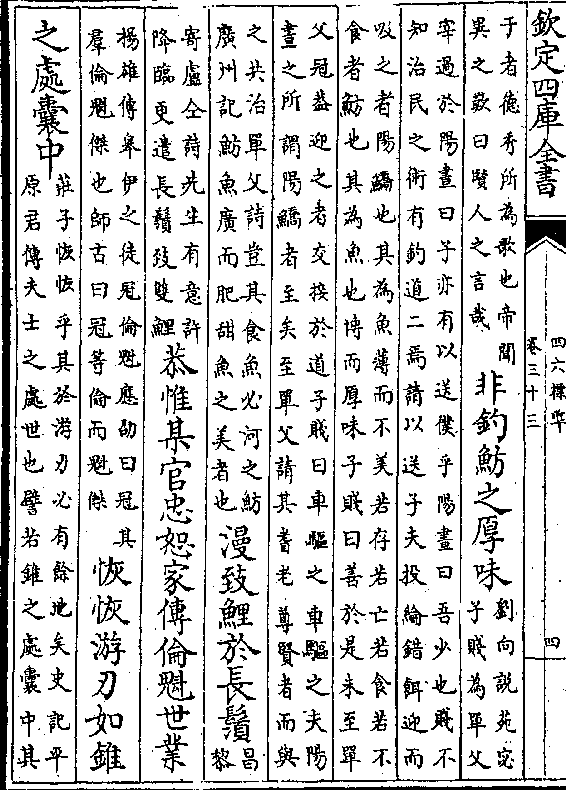 欽定四庫全書
四六標準
卷三十三
四
于者德秀所為歌也帝聞
異之歎曰賢人之言哉
非釣魴之厚味
劉向說苑宓
子賤為單父
宰過於陽晝曰子亦有以送僕乎陽晝曰吾少也賤不
知治民之術有釣道二焉請以送子夫投綸錯餌迎而
吸之者陽鱎也其為魚薄而不美若存若亡若食若不
食者魴也其為魚也博而厚味子賤曰善於是未至單
父冠蓋迎之者交接於道子賤曰車驅之車驅之夫陽
晝之所謂陽鱎者至矣至單父請其耆老尊賢者而與
之共治單父詩豈其食魚必河之魴
廣州記魴魚廣而肥甜魚之美者也
漫致鯉於長鬚
昌
黎
寄盧仝詩先生有意許
降臨更遣長鬚致雙鯉
恭惟某官忠恕家傳倫魁世業
揚雄傳皋伊之徒冠倫魁應劭曰冠其
羣倫魁傑也師古曰冠等倫而魁傑
恢恢游刃如錐
之處囊中
莊子恢恢乎其於游刃必有餘地矣史記平
原君傳夫士之處世也譬若錐之處囊中其